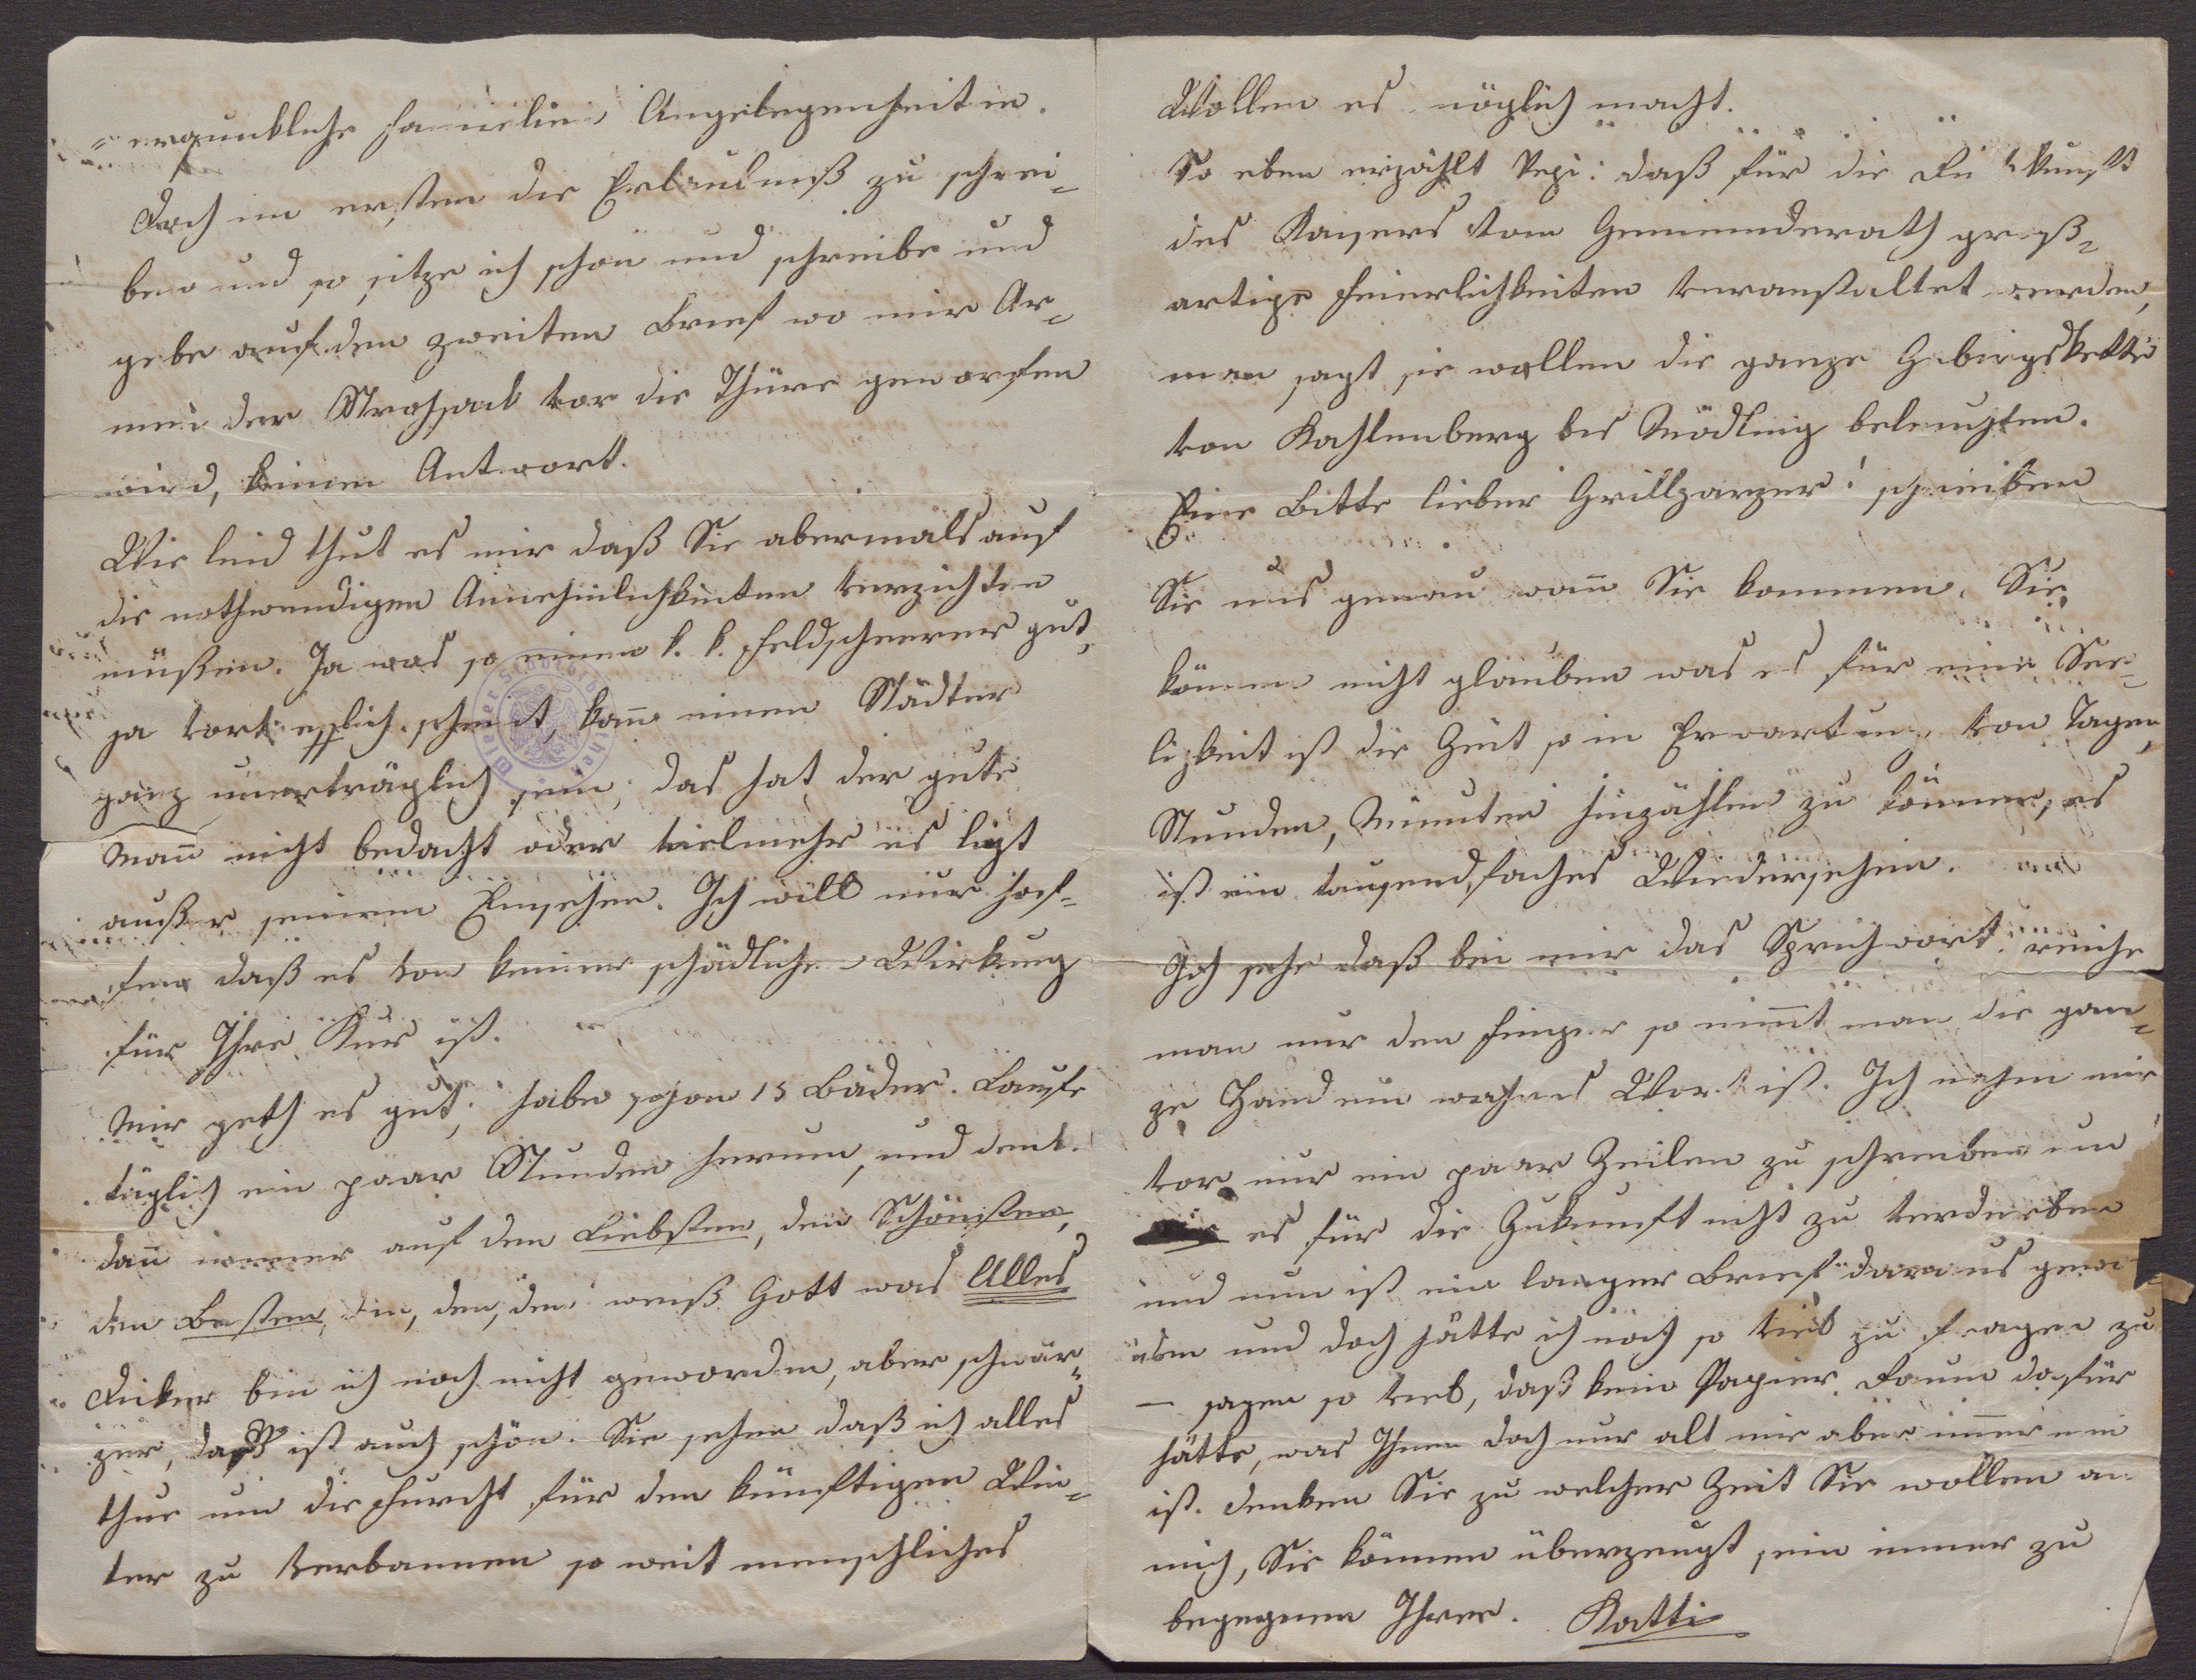 =erquickliche Familien Angelegenheiten.
Doch im ersten die Erlaubniß zu schrei-
ben und so sitze ich schon und schreibe und
gebe auf den zweiten Brief wo mir Ar-
men der Strohsack vor die Thüre geworfen
wird, keinen Antwort.
Wie leid thut es mir daß Sie abermals auf
die nothwendigen Annehmlichkeiten verzichten
müßen. Ja was so einem k. k. Feldscheerer gut,
ja vortrefflich scheint, kann einem Städter
ganz unerträglich sein, das hat der gute
Mann nicht bedacht oder vielmehr es ligt
außer seinem Einsehen. Ich will nur hof-
fen daß es von keiner schädlichen Wirkung
für Ihre Kur ist.
Mir geth es gut, habe schon 15 Bäder. Laufe
täglich ein paar Stunden herum, und denk
dann immer auf den Liebsten, den Schönsten,
den Besten, den, den, den weiß Gott was Alles
Dicker bin ich noch nicht geworden, aber schwär-
zer, daß ist auch schön. Sie sehen daß ich alles
thue um die Furcht für den künftigen Win-
ter zu verbannen so weit menschliches
Wollen es möglich macht.
So eben erzählt Pepi: daß für die Ankunft
des Kaisers vom Gemeinderath groß-
artige Feierlichkeiten veranstaltet werden,
man sagt sie wollen die ganze Gebirgskette
von Kahlenberg bis Mödling beleuchten.
Eine Bitte lieber Grillparzer! schreiben
Sie uns genau wann Sie kommen. Sie
können nicht glauben was es für eine See-
ligkeit ist die Zeit so in Erwartung von Tagen,
Stunden, Minuten hinzählen zu können, es
ist ein tausendfaches Wiedersehen.
Ich sehe daß bei mir das Sprichwort: reiche
man nur den Finger so nimmt man die gan-
ze Hand ein wahres Wort ist. Ich nahm mir
vor nur ein paar Zeilen zu schreiben um
es für die Zukunft nicht zu verderben
und nun ist ein langer Brief daraus gewor-
den und doch hätte ich noch so viel zu fragen zu
— sagen so viel, daß kein Papier Raum dafür
hätte, was Ihnen doch nur alt mir aber immer neu
ist. Denken Sie zu welcher Zeit Sie wollen an
mich, Sie können überzeugt sein immer zu
begegnen Ihrer. Katti